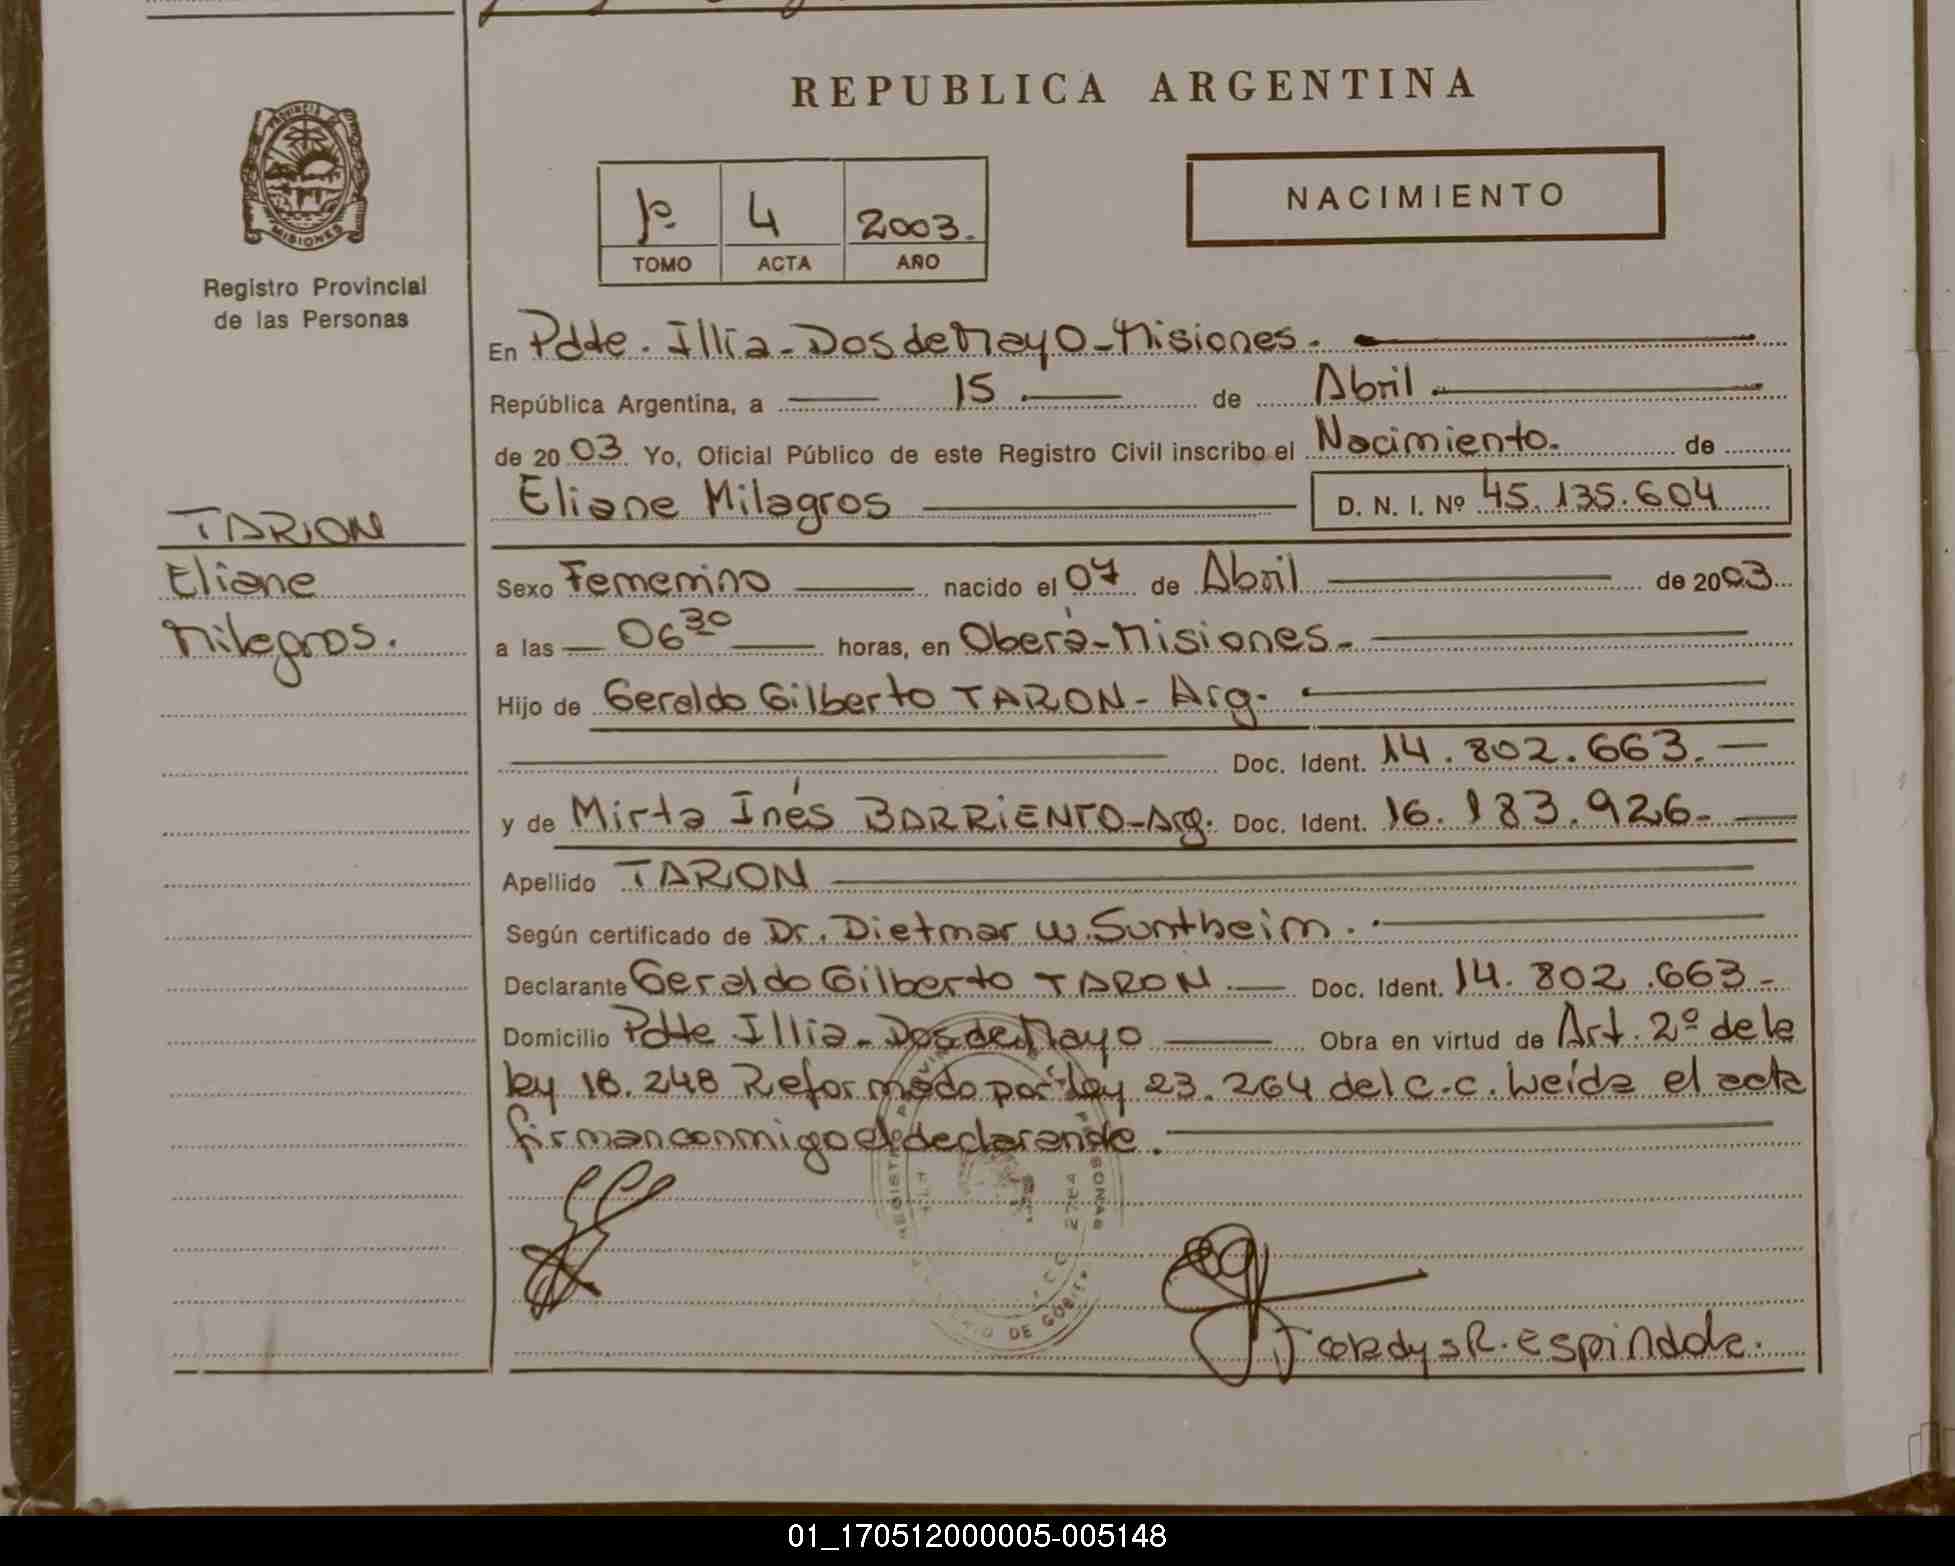 REPUBLICA ARGENTINA
PROVINCIA DE
MISIONES
Registro Provincial
de las Personas
1º 4 2003.
TOMO ACTA AÑO
NACIMIENTO
En Pdte. Illia - Dos de Mayo - Misiones.
República Argentina, a 15 de Abril
de 2003 Yo, Oficial Público de este Registro Civil inscribo el Nacimiento. de
Eliane Milagros D. N. I. Nº 45.135.604
TARION
Eliane
Milagros.
Sexo Femenino nacido el 07 de Abril de 2003
a las 06 30 horas, en Oberá - Misiones.-
Hijo de Geraldo Gilberto TARON - Arg.
Doc. Ident. 14.802.663.
y de Mirta Inés BARRIENTO - Arg. Doc. Ident. 16.183.926-
Apellido TARON
Según certificado de Dr. Dietmar W. Suntheim.
Declarante Geraldo Gilberto TARON Doc. Ident. 14.802.663-
Domicilio Pdte Illia - Dos de Mayo Obra en virtud de Art. 2º de la
ley 18.248 Reformado por ley 23.264 del C.C. Leída el acta
firman conmigo el declarande.
DE GOB
PERSONAS
2764
R. Espindola.
01_170512000005-005148